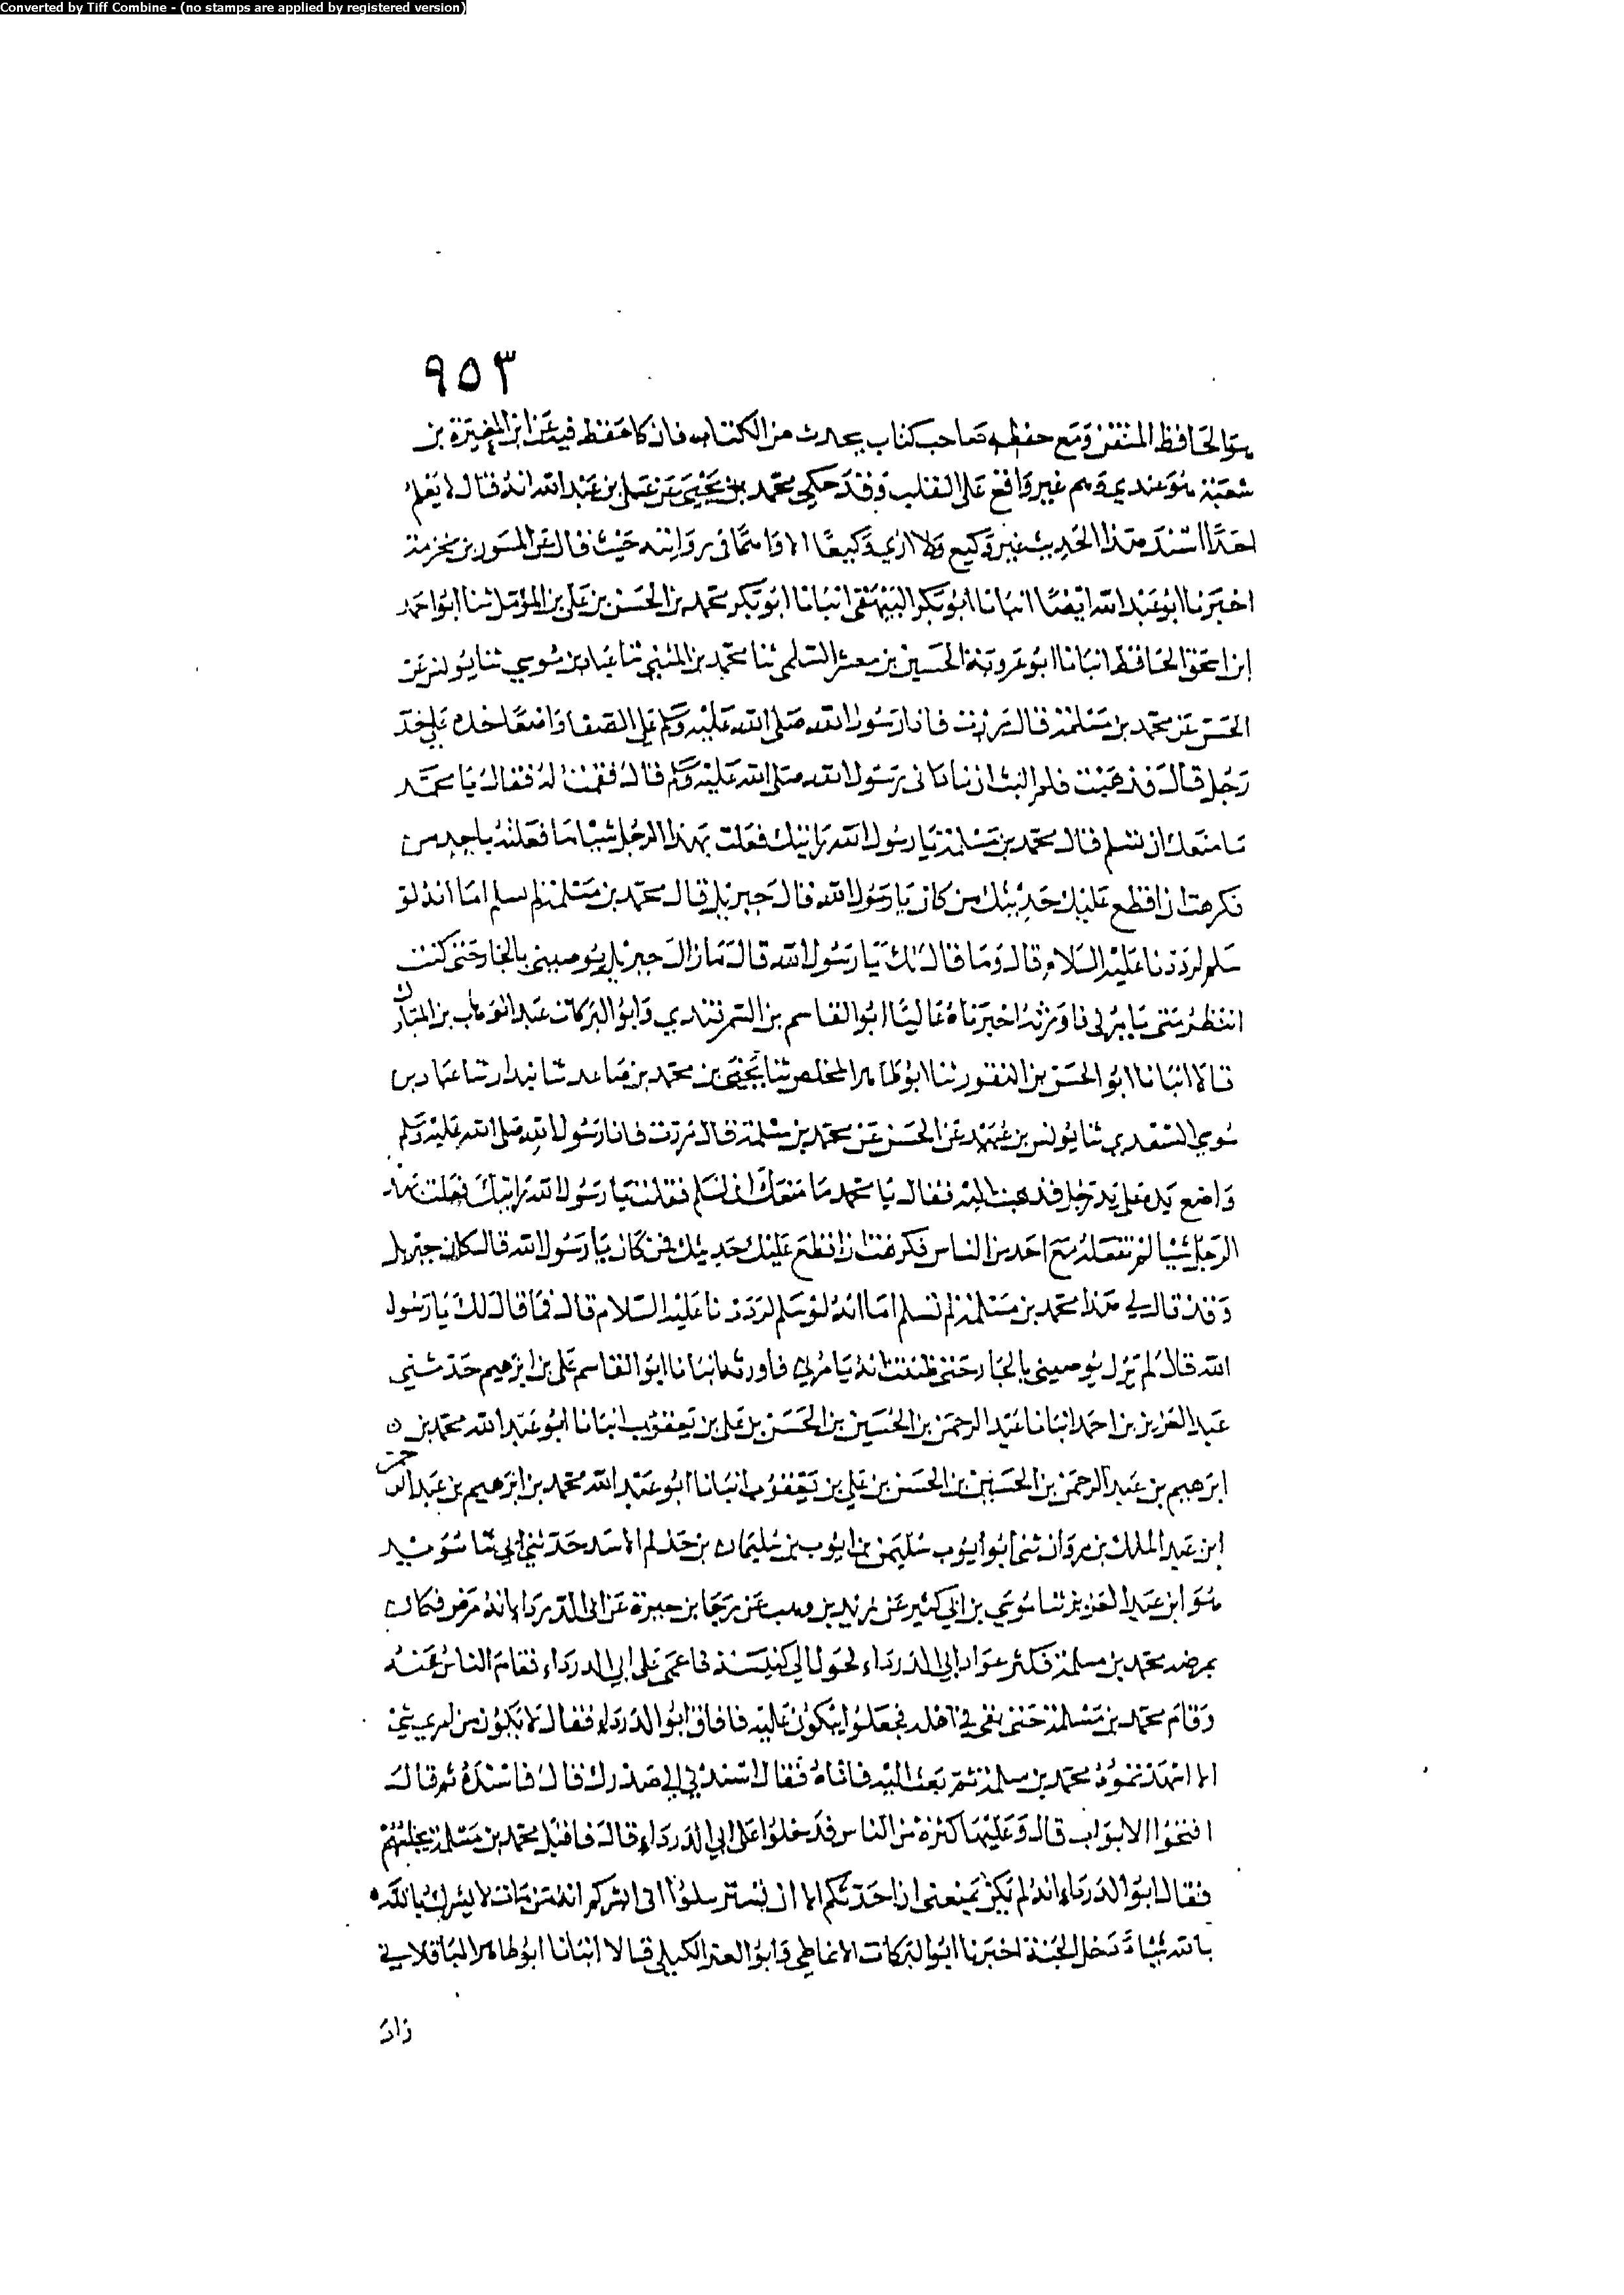 Converted by Tiff Combine - (no stamps are applied by registered version)
٩٥٣
هو الحافظ المتقن ومع حفظه صاحب كتاب يحدث من الكتاب فان كا حفظ فيه عن ابن المغيرة بن
شعبة هو عندي وهم غير واقع على القلب وقد حكى محمد بن يحيى عن علي بن عبد الله انه قال لا يعلم
احدا اسند هذا الحديث غير وكيع ولا ارى وكيعا الا واهما في روايته حيث قال عن المسور بن مخرمة
اخبرنا ابو عبد الله ايضا انبانا ابو بكر البيهقي انبانا ابو بكر محمد بن الحسن بن علي بن المؤمل ثنا ابو احمد
ابن اسحق الحافظ انبانا ابو عروبة الحسين بن معشر السلمي ثنا محمد بن المثنى ثنا عباد بن موسى ثنا يونس عن
الحسن عن محمد بن مسلمة قال مررت فاذا رسول الله صلى الله عليه وسلم على الصفا واضعا خده على خد
رجل قال فذهبت فلم البث ان ناداني رسول الله صلى الله عليه وسلم قال فقمت له فقال يا محمد
ما منعك ان تسلم قال محمد بن مسلمة يا رسول الله رايتك فعلت بهذا الرجل شيئا ما فعلته باحد من
فكرهت ان اقطع عليك حديثك من كان يا رسول الله قال جبريل قال محمد بن مسلمة لم يسلم اما انه لو
سلم لرددنا عليه السلام قال وما قال لك يا رسول الله قال ما زال جبريل يوصيني بالجار حتى كنت
انتظر متى يامرني فاورثه اخبرناه عاليا ابو القاسم بن السمرقندي وابو البركات عبد الوهاب بن المبارك
قالا انبانا ابو الحسن بن النقور ثنا ابو طاهر المخلص ثنا يحيى بن محمد بن صاعد ثنا بندار ثنا عباد بن
موسى السعدي ثنا يونس بن عبيد عن الحسن عن محمد بن مسلمة قال مررت فاذا رسول الله صلى الله عليه وسلم
واضع يده على يد رجل فذهبت اليه فقال يا محمد ما منعك ان تسلم فقلت يا رسول الله رايتك فعلت بهذا
الرجل شيئا لم تفعله مع احد من الناس فكرهت ان اقطع عليك حديثك فمن كان يا رسول الله قال كان جبريل
وقد قال لي هذا محمد بن مسلمة لم تسلم اما انه لو سلم لرددنا عليه السلام قال فما قال لك يا رسول
الله قال لم يزل يوصيني بالجار حتى ظننت انه يامرني فاورثه انبانا ابو القاسم علي بن ابرهيم حدثني
عبد العزيز بن احمد انبانا عبد الرحمن بن الحسين بن الحسن بن علي بن يعقوب انبانا ابو عبد الله محمد بن
ابرهيم بن عبد الرحمن بن الحسين بن الحسن بن علي بن يعقوب انبانا ابو عبد الله محمد بن ابرهيم بن عبد الرحمن
ابن عبد الملك بن مروان ثنا ابو ايوب سليمن بن ايوب بن سليمان بن حذلم الاسد حدثني ابي ثنا سويد
هو ابن عبد العزيز ثنا موسى بن ابي كثير عن يزيد بن وهب عن رجا بن حيوة عن ابي الدرداء انه مرض فكان
يمرضه محمد بن مسلمة فكثر عواد ابي الدرداء فحول الى كنيسة فاغمي على ابي الدرداء فقام الناس عنه
وقام محمد بن مسلمة حتى بقي في اهله فجعلوا يبكون عليه فافاق ابو الدرداء فقال لا تبكون من
محمد بن مسلمة ثم بعث اليه فاتاه فقال اسندني الى صدرك قال فاسنده ثم قال
افتحوا الابواب قال وعليها كثرة من الناس فدخلوا على ابي الدرداء قال فاقبل محمد بن مسلمة يجلسهم
فقال ابو الدرداء انه لم يكن يمنعني ان احدثكم الا ان تسترسلوا اني ابشركم انه من مات لا يشرك بالله
بالله شيئا دخل الجنة اخبرنا ابو البركات الانماطي وابو العز الكيلي قالا انبانا ابو طاهر الباقلاني
زاد